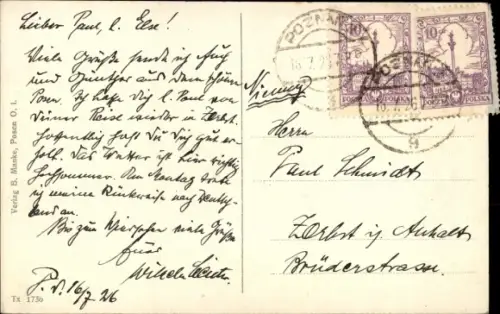 Lieber Paul, l. Else!
Viele Grüße sende ich Euch
und Günther aus dem schönen
Posen. Ich hoffe Dich l. Paul von
Deiner Reise wieder in Zerbst.
Hoffentlich hast Du Dich gut er-
holt. Das Wetter ist hier richtig
hochsommer. Am Montag trete
ich meine Rückreise nach Deutsch-
land an.
Bis zum Wiedersehen viele Grüße
Euer
Wilhelm
P. d. 16/7 26
Verlag B. Manke, Posen O. 1.
Tx 1736
POZNAŃ
18.7.26
9
10
10
POCZTA POLSKA
Niemcy
Herrn
Paul Schmidt
Zerbst i/ Anhalt
Brüderstrasse.